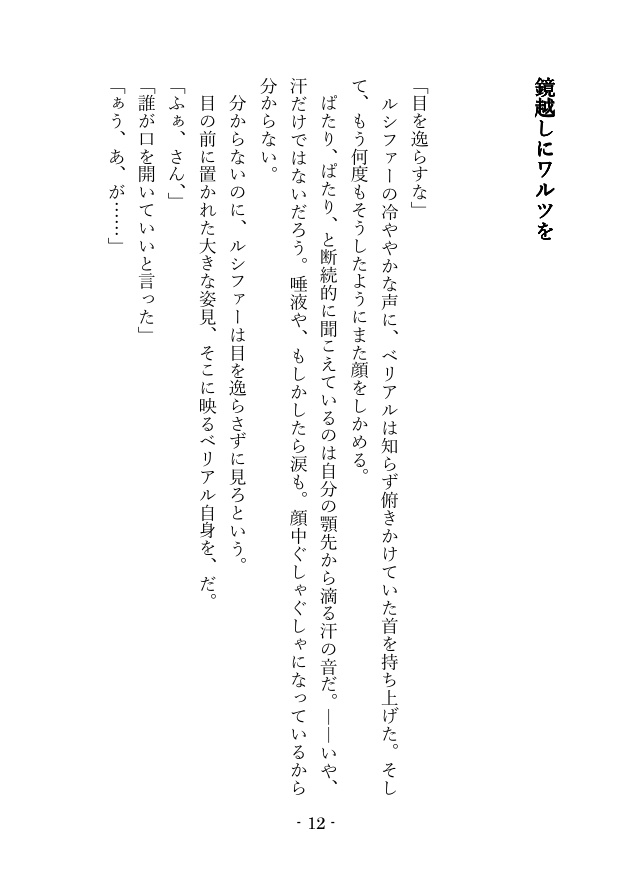 鏡越しにワルツを
「目を逸らすな」
ルシファーの冷ややかな声に、ベリアルは知らず俯きかけていた首を持ち上げた。そし
て、もう何度もそうしたようにまた顔をしかめる。
ぱたり、ぱたり、と断続的に聞こえているのは自分の顎先から滴る汗の音だ。――いや、
汗だけではないだろう。唾液や、もしかしたら涙も。顔中ぐしゃぐしゃになっているから
分からない。
分からないのに、ルシファーは目を逸らさずに見ろという。
目の前に置かれた大きな姿見、そこに映るベリアル自身を、だ。
「ふぁ、さん、」
「誰が口を開いていいと言った」
「ぁう、あ、が……」
- 12 -